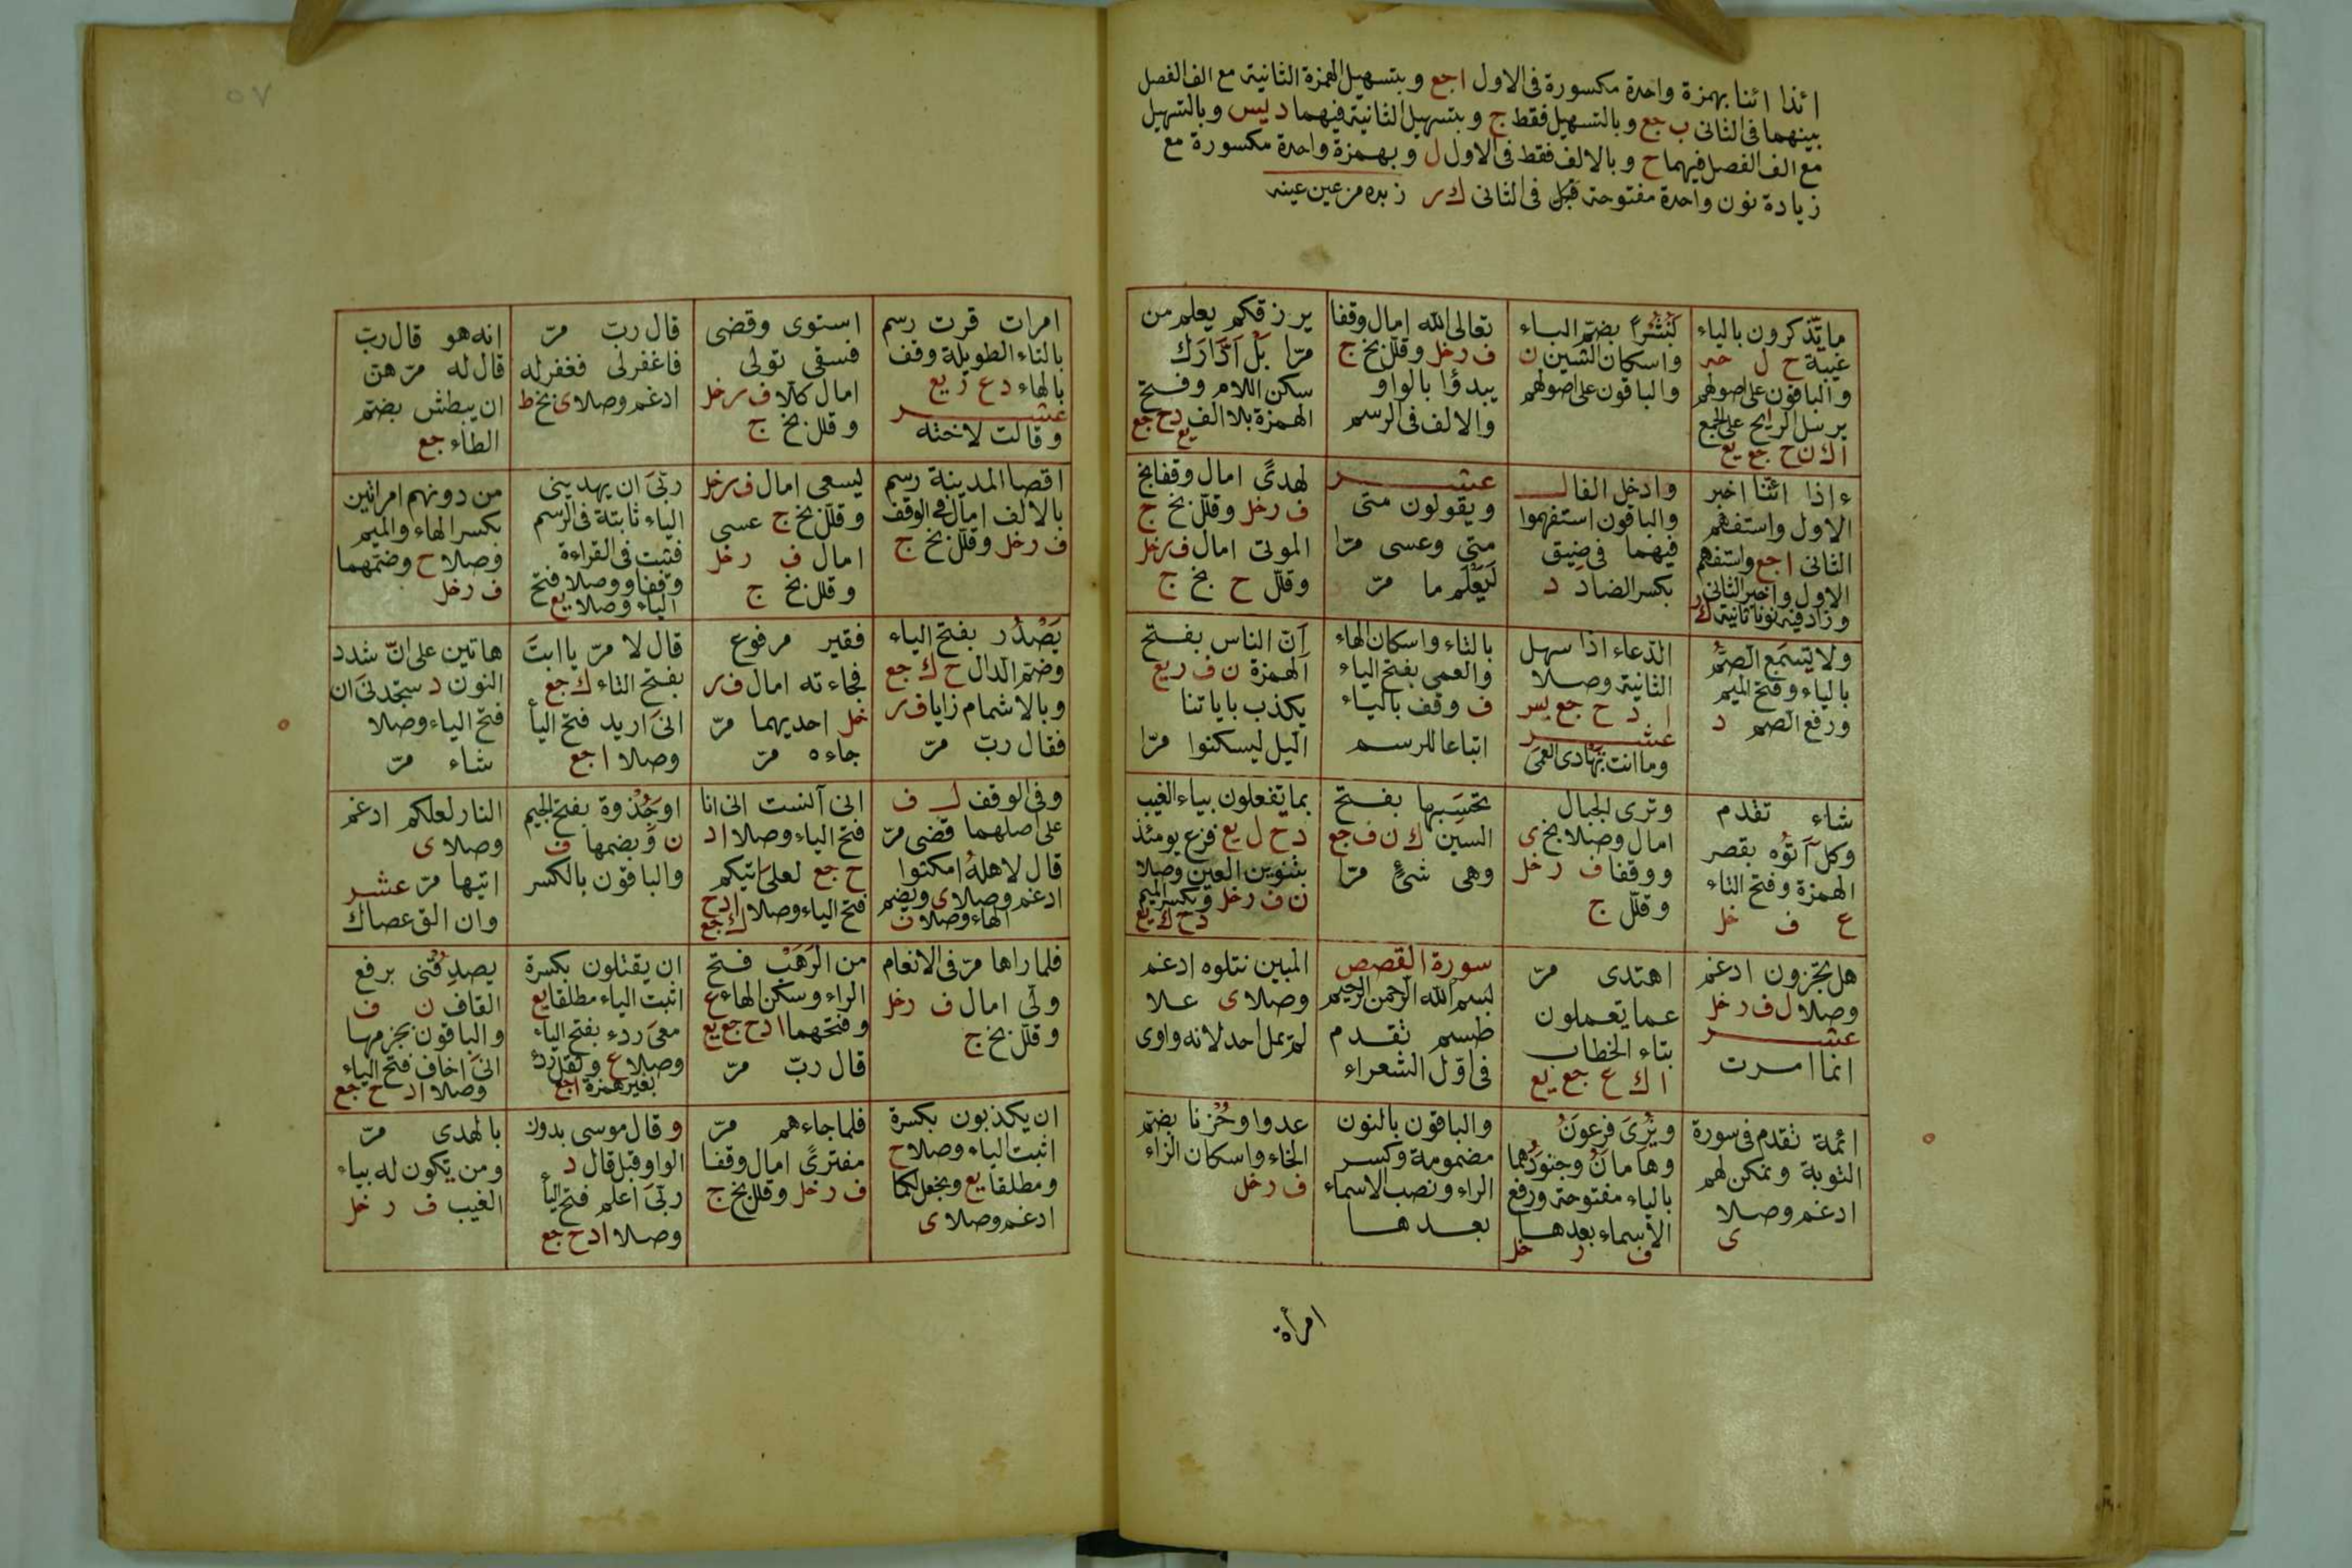 ائذا ائنا بهمزة واحدة مكسورة فى الاول اجع وبتسهيل الهمزة الثانية مع الف الفصل
بينهما فى الثانى ب جع وبالتسهيل فقط ج وبتسهيل الثانية فيهما د يس وبالتسهيل
مع الف الفصل فيهما ح وبالالف فقط فى الاول ل وبهمزة واحدة مكسورة مع
زيادة نون واحدة مفتوحة قبل فى الثانى ك ر زبده من عين عينه
ما يذكرون بالياء
غيبة ح ل
والباقون على اصولهم
يرسل الرايح على الجمع
ا ك ن ح جع يع
نُشْرًا بضم الباء
واسكان الشين ن
والباقون على اصولهم
تعالى الله امال وقفا
ف ر خل وقلل بخ ج
يبدؤا بالواو
والالف فى الرسم
يرزقكم يعلم من
مرّا بَلْ اَدْارَك
سكن اللام وفتح
الهمزة بلا الف د ح جع
يع
ءاذا ائنا اخبر
الاول واستفهم
الثانى اجع واستفهم
الاول واخبر الثانى ر
وزاد فيه نونا ثانية ك
وادخل الفا لـ
والباقون استفهموا
فيهما فى ضيق
بكسر الضاد د
عشر
ويقولون متى
متى وعسى مرّا
لَيَعْلَم ما مرّ
لهدًى امال وقفا بخ
ف ر خل وقلل بخ ج
الموتى امال ف ر خل
وقلل ح بخ ج
ولا يَسْمَع الصمُّ
بالياء وفتح الميم
ورفع الصم د
الدعاء اذا سهل
الثانية وصلا
ا د ح جع يس
عشر
وما انت بهادى العمى
بالتاء واسكان الهاء
والعمى بفتح الياء
ف ووقف بالياء
اتباعا للرسم
اَنّ الناس بفتح
الهمزة ن ف ر يع
يكذب باياتنا
اليل ليسكنوا مرّا
شاء تقدم
وكل آتوه بقصر
الهمزة وفتح التاء
ع ف خل
وترى الجبال
امال وصلا بخ ى
ووقفا ف ر خل
وقلل ج
تحسَبها بفتح
السين ك ن ف جع
وهى شئ مرّا
بما تفعلون بياء الغيب
د ح ل يع فزع يومئذ
بتنوين العين وصلا
ن ف ر خل وبكسر الميم
د ح ك يع
هل تجزون ادغم
وصلا ل ف ر خل
عشر
انما امرت
اهتدى مرّ
عما يعملون
بتاء الخطاب
ا ك ع جع يع
سورة القصص
بسم الله الرحمن الرحيم
طسم تقدم
فى اوّل الشعراء
المبين نتلوه ادغم
وصلا ى علا
لم يمل احد لانه واوى
ائمة تقدم فى سورة
التوبة ونمكن لهم
ادغم وصلا
ى
ويَرَى فرعونُ
وهامانُ وجنودُهما
بالياء مفتوحة ورفع
الاسماء بعدها
ف ر خل
والباقون بالنون
مضمومة وكسر
الراء ونصب الاسماء
بعدها
عدوا وحُزْنا بضم
الحاء واسكان الزاء
ف ر خل
امرأة
٥٧
امرات قرت رسم
بالتاء الطويلة وقف
بالهاء د ع ر يع
عشر
وقالت لاخته
استوى وقضى
فسقى تولى
امال كلا ف ر خل
وقلل بخ ج
قال ربّ مرّ
فاغفرلى فغفر له
ادغم وصلا ى بخ ط
انه هو قال ربّ
قال له مرّ هن
ان يبطش بضم
الطاء جع
اقصا المدينة رسم
بالالف امال فى الوقف
ف ر خل وقلل بخ ج
ليسعى امال ف ر خل
وقلل بخ ج عسى
امال ف ر خل
وقلل بخ ج
ربّى ان يهدينى
الياء ثابتة فى الرسم
فثبت فى القراءة
وقفا ووصلا فتح
الياء وصلا يع
من دونهم امراتين
بكسر الهاء والميم
وصلا ح وضمهما
ف ر خل
يَصْدُر بفتح الياء
وضم الدال ح ك جع
وبالاشمام زايا ف ر
فقال ربّ مرّ
فقير مرفوع
فجاءته امال ف ر
خل احديهما مرّ
جاءه مرّ
قال لا مرّ يا ابتَ
بفتح التاء ك جع
انى اريد فتح اليأ
وصلا اجع
هاتين على انّ شدد
النون د ستجدنى ان
فتح الياء وصلا
شاء مرّ
وفى الوقف لـ ف
على اصلهما قضى مرّ
قال لاهله امكثوا
ادغم وصلا ى وبضم
الهاء وصلا ف
انى آنست انى انا
فتح الياء وصلا ا د
ح جع لعلى اتيكم
فتح الياء وصلا ا د ح
ك جع
او جَذوة بفتح الجيم
ن وبضمها ف
والباقون بالكسر
النار لعلكم ادغم
وصلا ى
اتيها مرّ عشر
وان الق عصاك
فلما راها مرّ فى الانعام
ولّى امال ف ر خل
وقلل بخ ج
من الرَهْب فتح
الراء وسكن الهاء ع
وفتحهما ا د ح جع يع
قال ربّ مرّ
ان يقتلون بكسرة
اثبت الياء مطلقا يع
معى ردء بفتح الياء
وصلا ع ونقل ردً
بغير همزة اجع
يصدقُنى برفع
القاف ن ف
والباقون بجزمها
انى اخاف فتح الياء
وصلا ا د ح جع
ان يكذبون بكسرة
اثبت الياء وصلا ج
ومطلقا يع ونجعل لكما
ادغم وصلا ى
فلما جاءهم مرّ
مفترًى امال وقفا
ف ر خل وقلل بخ ج
وقال موسى بدون
الواو قبل قال د
ربّى اعلم فتح اليأ
وصلا ا د ح جع
بالهدى مرّ
ومن يكون له بياء
الغيب ف ر خل